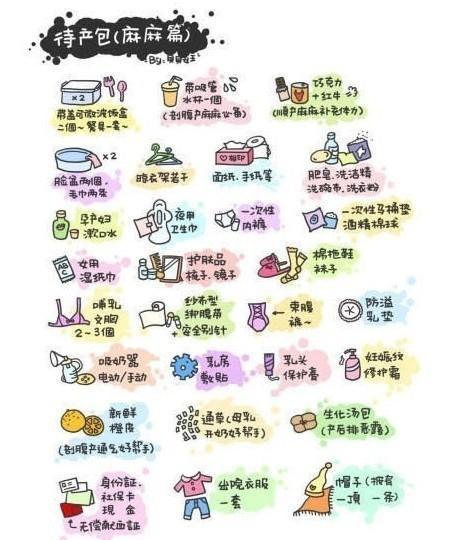 待产包(麻麻篇)
By:
×2
带盖可微波饭盒
二個~餐具一套~
带吸管
水杯一個
(剖腹产麻麻必备)
巧克力
+红牛
(顺产麻麻补充体力)
×2
脸盆两個,
毛巾两条
晾衣架若干
相印
面纸、手纸等
肥皂、洗洁精
洗碗布、洗衣粉
孕产妇
漱口水
夜用
卫生巾
一次性
内裤
一次性马桶垫
酒精棉球
ABC
女用
湿纸巾
护肤品
梳子、镜子
棉拖鞋
袜子
哺乳
文胸
2~3個
纱布型
绑腹带
+安全别针
束腹
裤~
防溢
乳垫
吸奶器
电动/手动
乳房
敷贴
乳头
保护膏
妊娠纹
修护霜
新鲜
橙皮
(剖腹产通气好帮手)
通草(母乳
开奶好帮手)
生化汤包
(产后排恶露)
身份証、
社保卡
现金
无偿献血証
坐院衣服
一套
帽子(披肩
一顶 一条)